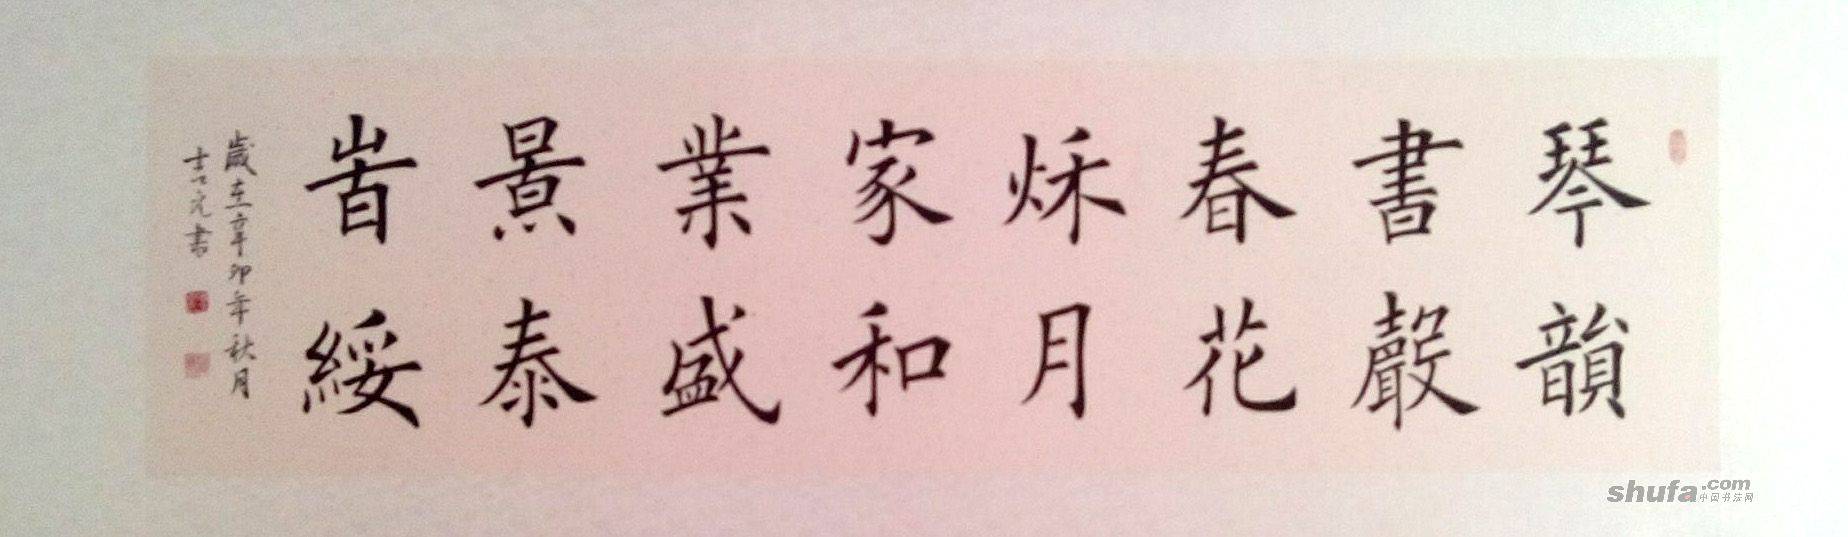 琴韻
書聲
春花
秌月
家和
業盛
景泰
旹綏
歲在辛卯年秋月
吉元書
shufa.com
中国书法网